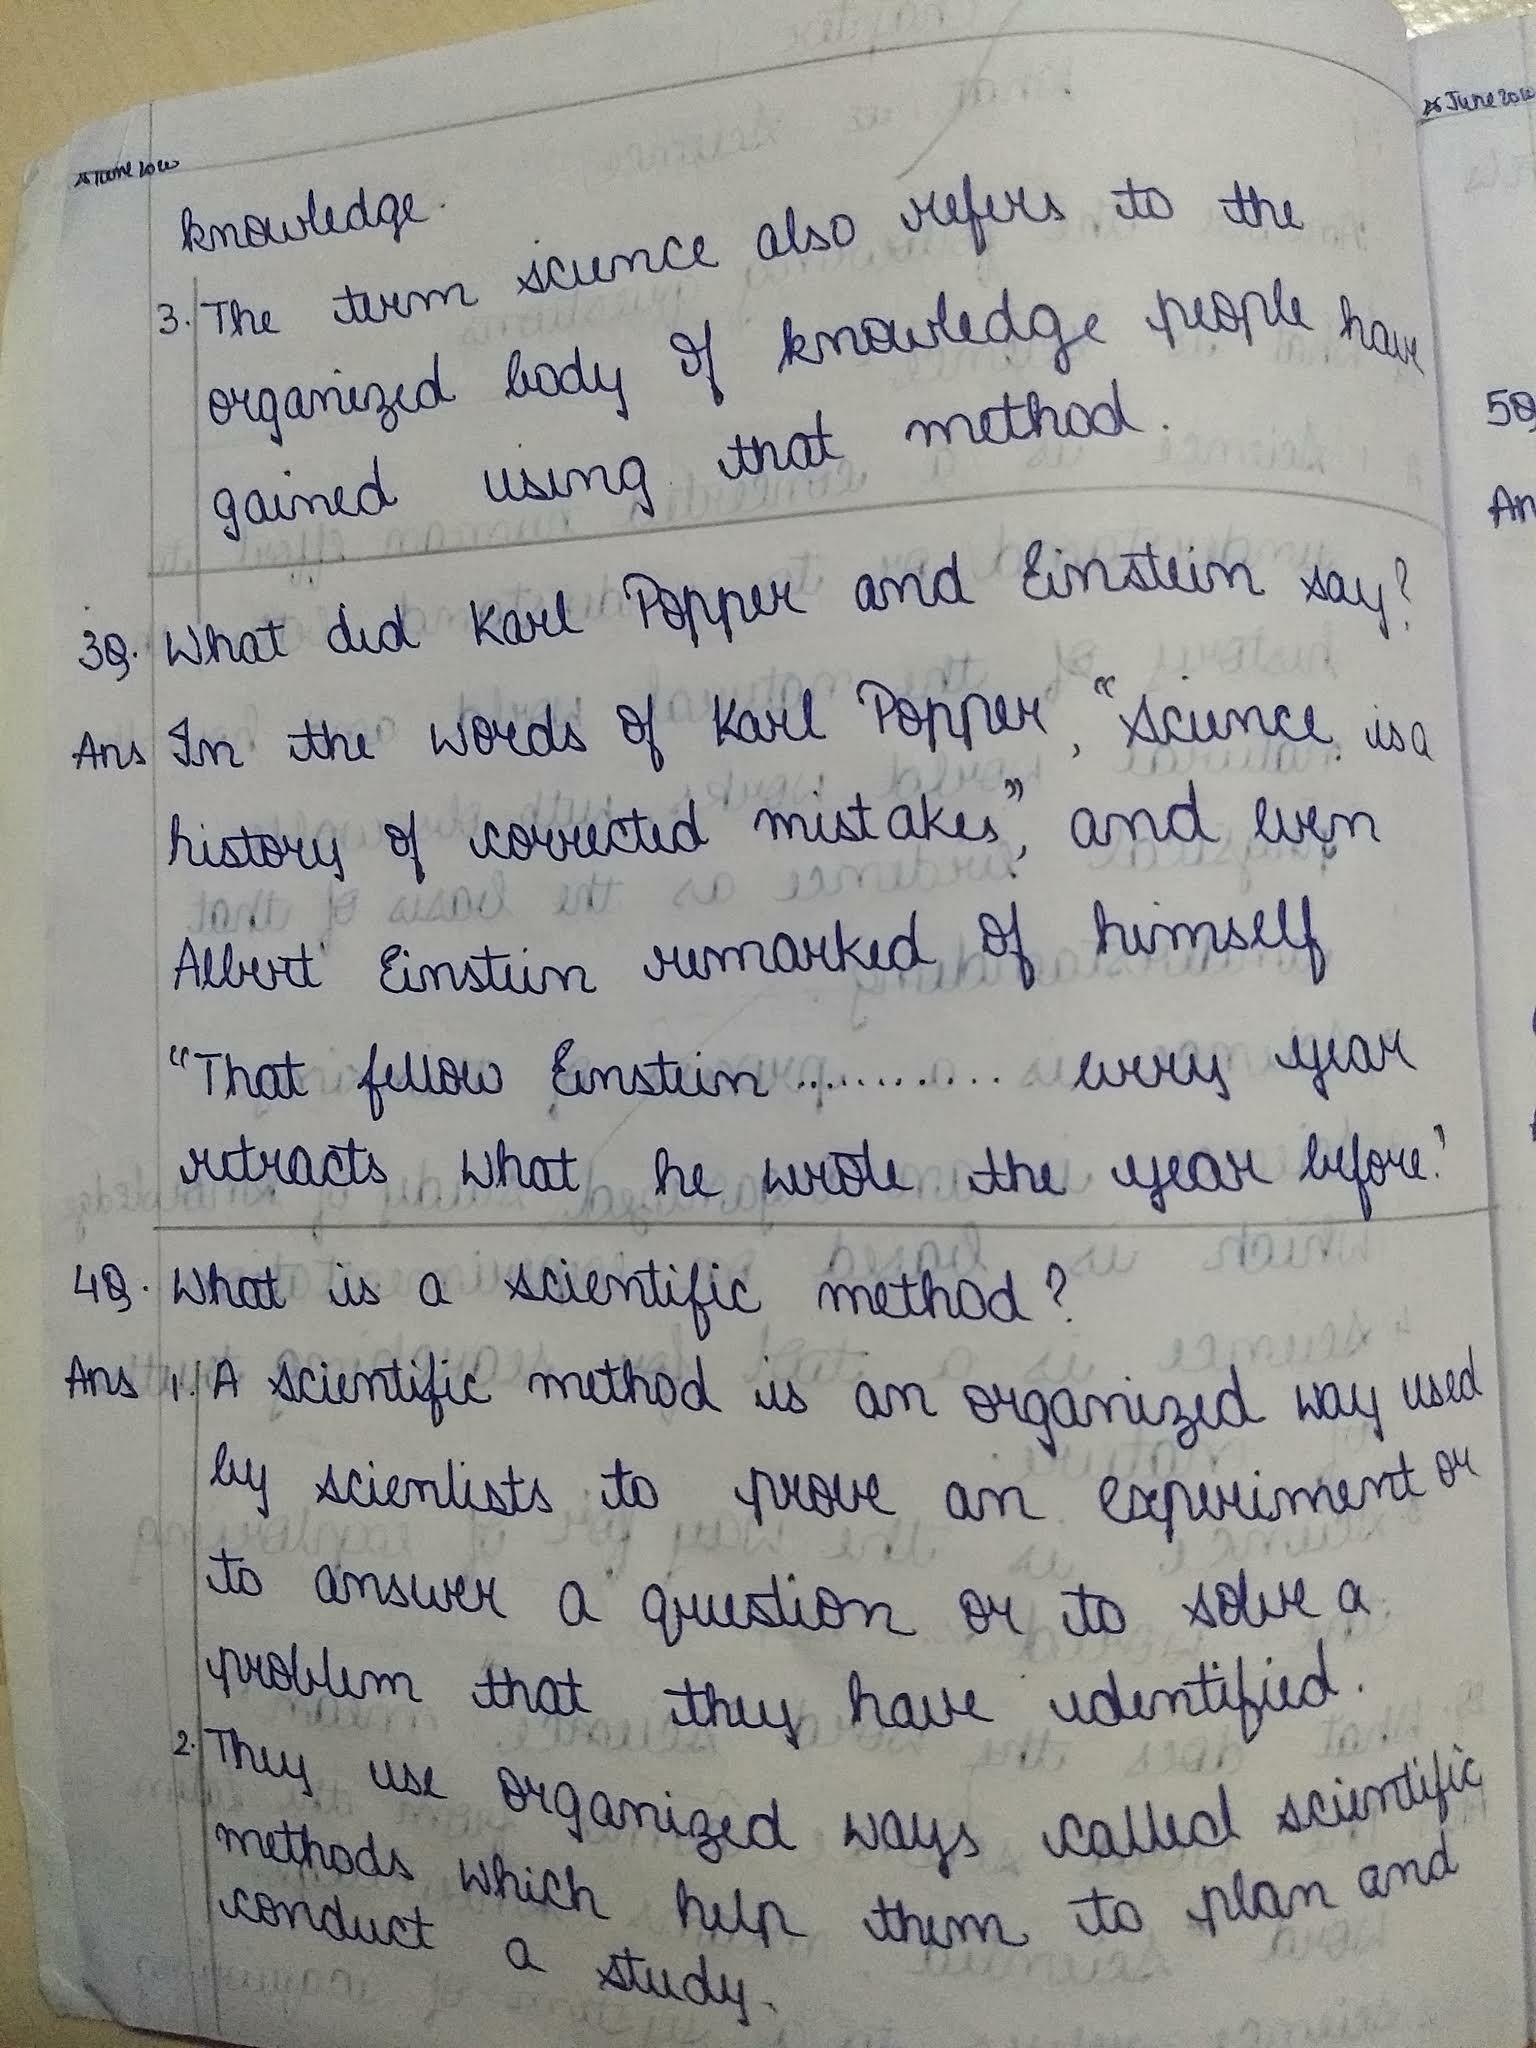 knowledge.
3. The term science also refers to the
organized body of knowledge people have
gained using that method.
3Q. What did Karl Popper and Einstein say?
Ans In the words of Karl Popper, "Science is a
history of corrected mistakes", and even
Albert Einstein remarked of himself
"That fellow Einstein ........... every year
retracts what he wrote the year before."
4Q. What is a scientific method?
Ans 1. A scientific method is an organized way used
by scientists to prove an experiment or
to answer a question or to solve a
problem that they have identified.
2. They use organized ways called scientific
methods which help them to plan and
conduct a study.
June
5Q
An